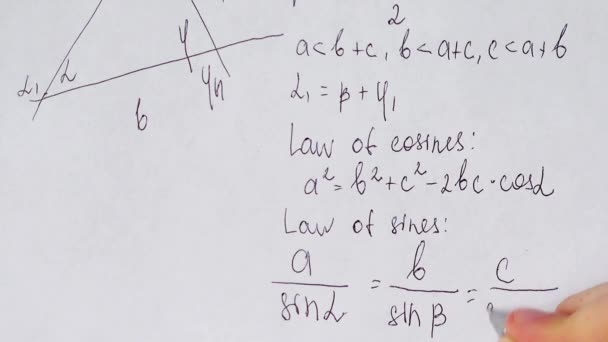 2
a < b + c, b < a + c, c < a + b
α₁ = β + γ₁
Law of cosines:
a² = b² + c² - 2bc · cosα
Law of sines:
a / sinα = b / sinβ = c /
α₁ α
γ
b